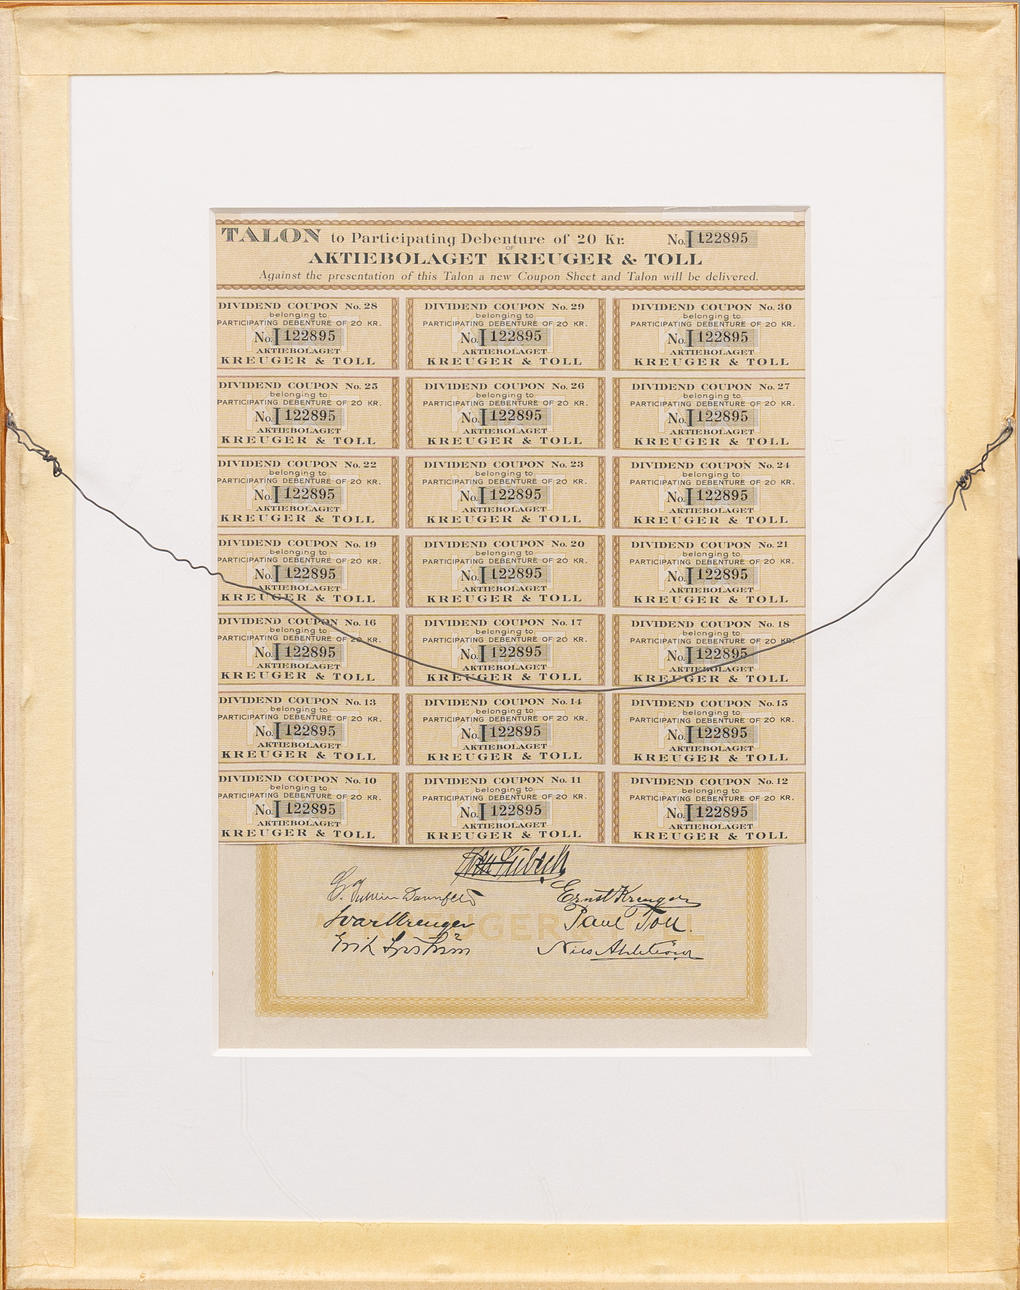 TALON to Participating Debenture of 20 Kr. No. I 122895
OF
AKTIEBOLAGET KREUGER & TOLL
Against the presentation of this Talon a new Coupon Sheet and Talon will be delivered.
DIVIDEND COUPON No. 28
belonging to
PARTICIPATING DEBENTURE OF 20 KR.
No. I 122895
AKTIEBOLAGET
KREUGER & TOLL
DIVIDEND COUPON No. 29
belonging to
PARTICIPATING DEBENTURE OF 20 KR.
No. I 122895
AKTIEBOLAGET
KREUGER & TOLL
DIVIDEND COUPON No. 30
belonging to
PARTICIPATING DEBENTURE OF 20 KR.
No. I 122895
AKTIEBOLAGET
KREUGER & TOLL
DIVIDEND COUPON No. 25
belonging to
PARTICIPATING DEBENTURE OF 20 KR.
No. I 122895
AKTIEBOLAGET
KREUGER & TOLL
DIVIDEND COUPON No. 26
belonging to
PARTICIPATING DEBENTURE OF 20 KR.
No. I 122895
AKTIEBOLAGET
KREUGER & TOLL
DIVIDEND COUPON No. 27
belonging to
PARTICIPATING DEBENTURE OF 20 KR.
No. I 122895
AKTIEBOLAGET
KREUGER & TOLL
DIVIDEND COUPON No. 22
belonging to
PARTICIPATING DEBENTURE OF 20 KR.
No. I 122895
AKTIEBOLAGET
KREUGER & TOLL
DIVIDEND COUPON No. 23
belonging to
PARTICIPATING DEBENTURE OF 20 KR.
No. I 122895
AKTIEBOLAGET
KREUGER & TOLL
DIVIDEND COUPON No. 24
belonging to
PARTICIPATING DEBENTURE OF 20 KR.
No. I 122895
AKTIEBOLAGET
KREUGER & TOLL
DIVIDEND COUPON No. 19
belonging to
PARTICIPATING DEBENTURE OF 20 KR.
No. I 122895
AKTIEBOLAGET
KREUGER & TOLL
DIVIDEND COUPON No. 20
belonging to
PARTICIPATING DEBENTURE OF 20 KR.
No. I 122895
AKTIEBOLAGET
KREUGER & TOLL
DIVIDEND COUPON No. 21
belonging to
PARTICIPATING DEBENTURE OF 20 KR.
No. I 122895
AKTIEBOLAGET
KREUGER & TOLL
DIVIDEND COUPON No. 16
belonging to
PARTICIPATING DEBENTURE OF 20 KR.
No. I 122895
AKTIEBOLAGET
KREUGER & TOLL
DIVIDEND COUPON No. 17
belonging to
PARTICIPATING DEBENTURE OF 20 KR.
No. I 122895
AKTIEBOLAGET
KREUGER & TOLL
DIVIDEND COUPON No. 18
belonging to
PARTICIPATING DEBENTURE OF 20 KR.
No. I 122895
AKTIEBOLAGET
KREUGER & TOLL
DIVIDEND COUPON No. 13
belonging to
PARTICIPATING DEBENTURE OF 20 KR.
No. I 122895
AKTIEBOLAGET
KREUGER & TOLL
DIVIDEND COUPON No. 14
belonging to
PARTICIPATING DEBENTURE OF 20 KR.
No. I 122895
AKTIEBOLAGET
KREUGER & TOLL
DIVIDEND COUPON No. 15
belonging to
PARTICIPATING DEBENTURE OF 20 KR.
No. I 122895
AKTIEBOLAGET
KREUGER & TOLL
DIVIDEND COUPON No. 10
belonging to
PARTICIPATING DEBENTURE OF 20 KR.
No. I 122895
AKTIEBOLAGET
KREUGER & TOLL
DIVIDEND COUPON No. 11
belonging to
PARTICIPATING DEBENTURE OF 20 KR.
No. I 122895
AKTIEBOLAGET
KREUGER & TOLL
DIVIDEND COUPON No. 12
belonging to
PARTICIPATING DEBENTURE OF 20 KR.
No. I 122895
AKTIEBOLAGET
KREUGER & TOLL
Ernst Kreuger
Ivar Kreuger
Paul Toll.
KREUGER
Nils Ahlström